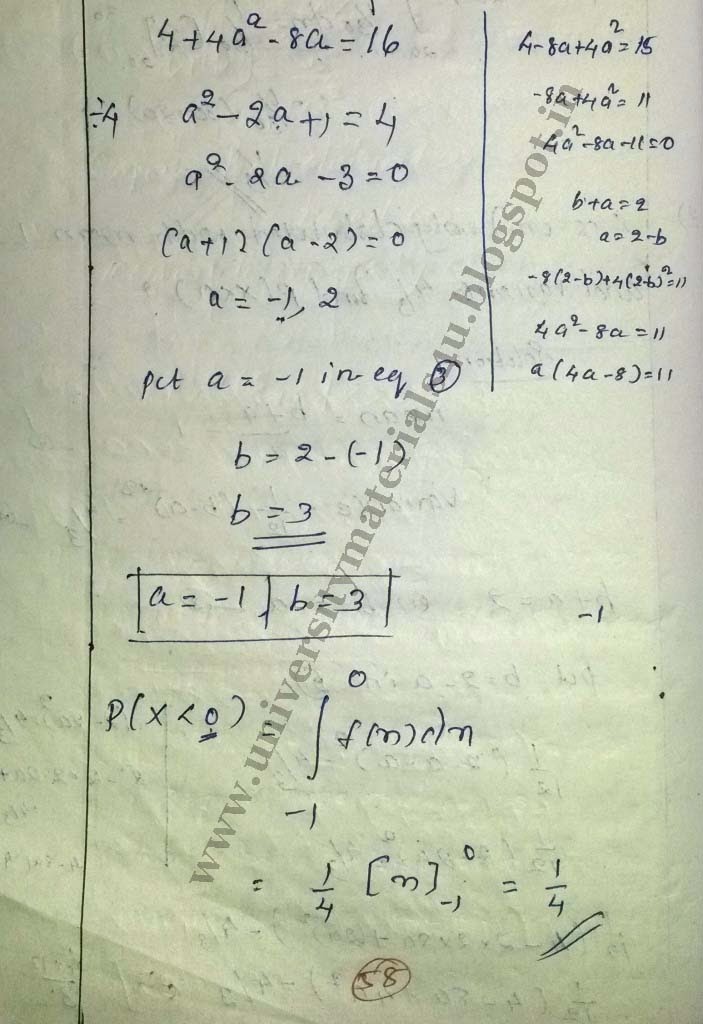 4 + 4a² - 8a = 16
÷4 a² - 2a + 1 = 4
a² - 2a - 3 = 0
(a+1) (a-2) = 0
a = -1, 2
put a = -1 in eq ③
b = 2 - (-1)
b = 3
a = -1, b = 3
P(X < 0) = ∫ 0 -1 f(n) dn
= 1/4 [n] 0 -1 = 1/4
58
4-8a+4a² = 15
-8a+4a² = 11
4a²-8a-11=0
b+a = 2
a = 2-b
-8(2-b)+4(2-b)² = 11
4a²-8a = 11
a(4a-8) = 11
-1
www.universitymaterials4u.blogspot.in